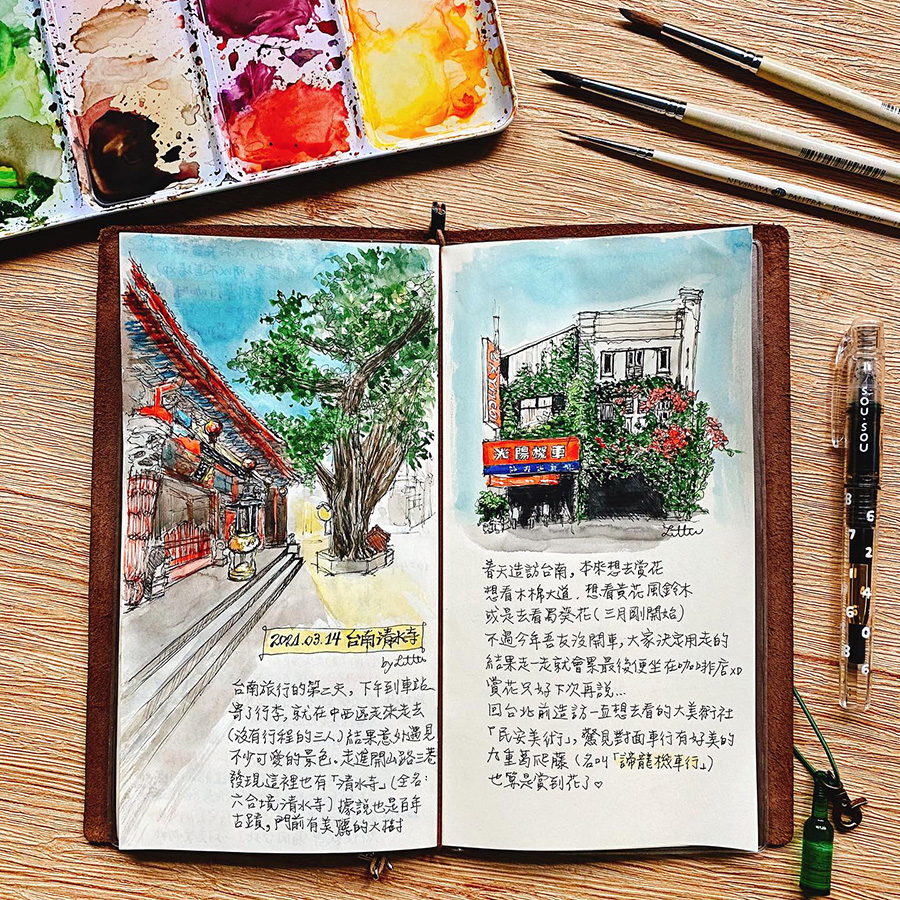 2021.03.14 台南 清水寺
by Litter
台南旅行的第三天,下午到車站
寄了行李,就在中西區走來走去
(沒有行程的三人)結果意外遇見
不少可愛的景色。走進開山路三巷
發現這裡也有「清水寺」(全名:
六合境清水寺)據說也是百年
古蹟,門前有美麗的大樹
光陽機車
Litter
春天造訪台南,本來想去賞花
想看木棉大道.想看黃花風鈴木
或是去看蜀葵花(三月剛開始)
不過今年吾友沒開車,大家決定用走的
結果走一走就會累最後便坐在咖啡店XD
賞花只好下次再說...
回台北前造訪一直想去看的大美術社
「民安美術」,驚見對面車行有好美的
九重葛爬藤(名叫「諦龍機車行」)
也算是賞到花了♡
NEVSKAYA PALITRA
SOU·SOU